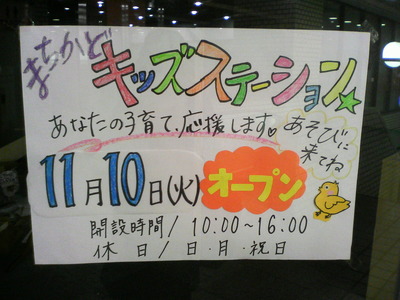 まちかど
キッズステーション☆
あなたの子育て、応援します♥
あそびに
来てね
11月10日(火)オープン
開設時間/10:00~16:00
休日/日・月・祝日